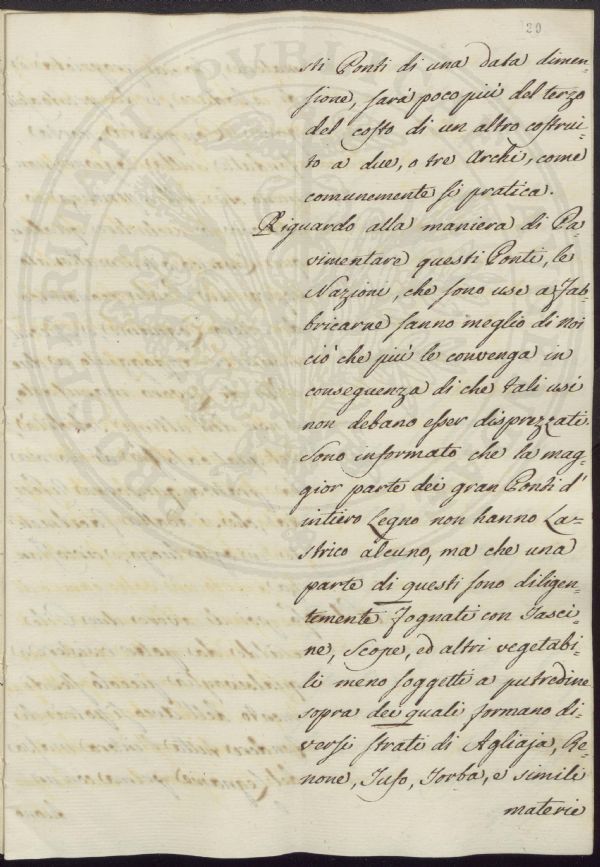 20
sti Ponti di una data dimen-
sione, sarà poco più del terzo
del costo di un altro costrui-
to a due, o tre Archi, come
comunemente si pratica.
Riguardo alla maniera di Pa-
vimentare questi Ponti, le
Nazioni, che sono use a Fab-
bricarne sanno meglio di noi
ciò che più le convenga in
conseguenza di che tali usi
non debano esser disprezzati.
Sono informato che la mag-
gior parte dei gran Ponti d'
intiero Legno non hanno La-
strico alcuno, ma che una
parte di questi sono diligen-
temente Fognati con Fasci-
ne, Scope, ed altri vegetabi-
li meno soggetti a putredine
sopra dei quali formano di-
versi strati di Agliaja, Re-
none, Tufo, Torba, e simili
materie